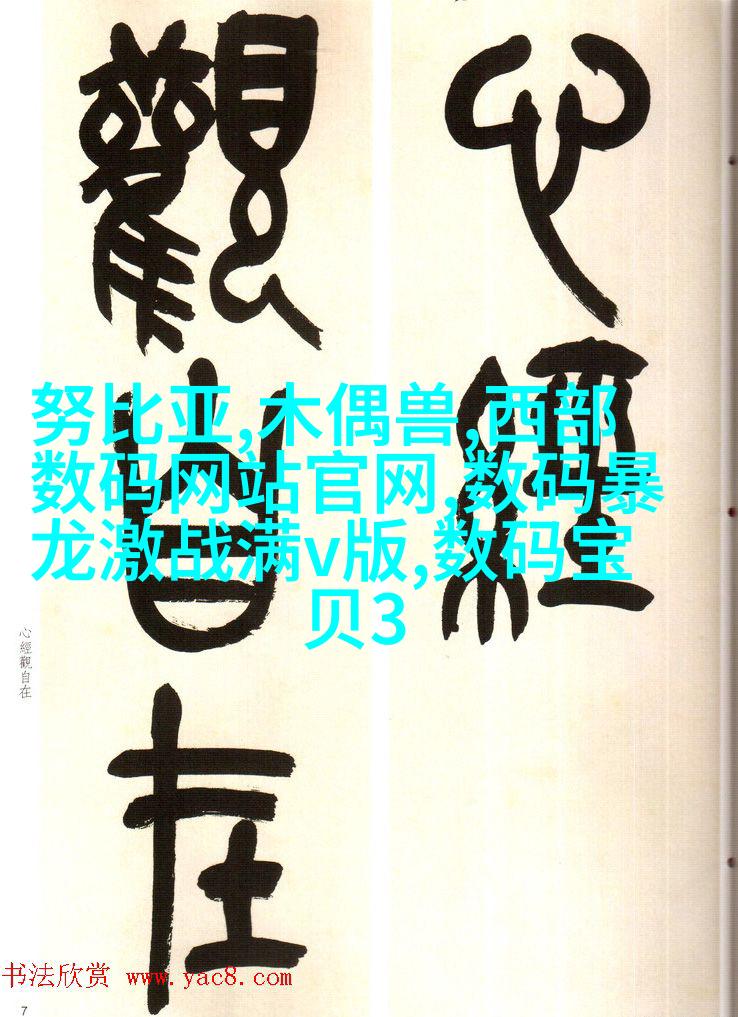 心經
觀自在
努比亚,木偶兽,西部
数码网站官网,数码暴
龙激战满v版,数码宝
贝3
心經觀自在
书法欣赏 www.yac8.com
7